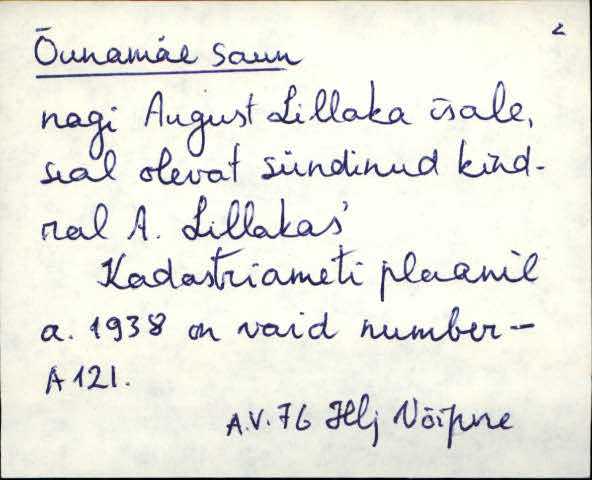 2
Õunamäe saun
nagi August Lillaka isale,
seal olevat sündinud kind-
ral A. Lillakas'
Kadastriameti plaanil
a. 1938 on vaid number -
A 121.
A.V. 76 Hlj Võipre